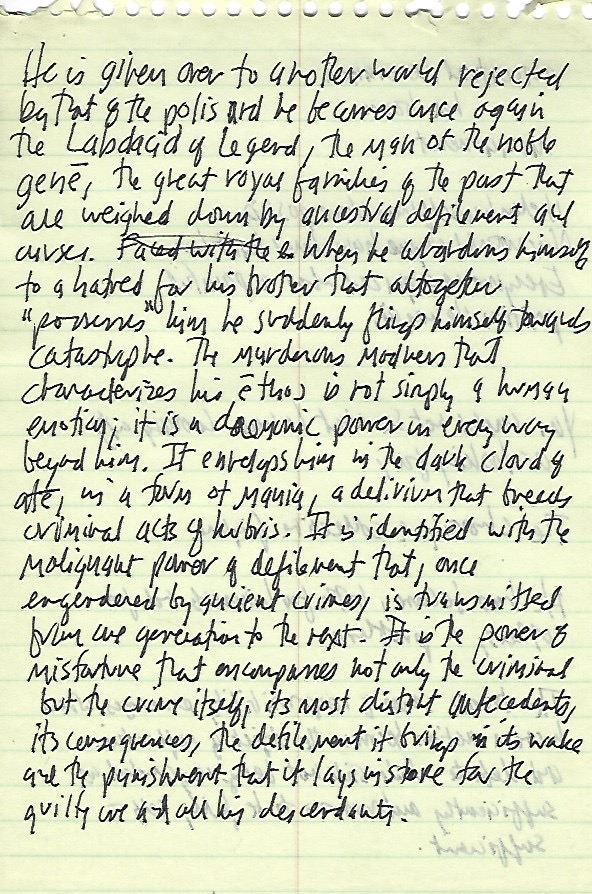 He is given over to another world rejected
by that of the polis and he becomes once again
the Labdacid of Legend, the man of the noble
genē, the great royal families of the past that
are weighed down by ancestral defilement and
curses. Faced with the When he abandons himself
to a hatred for his brother that altogether
"possesses" him he suddenly flings himself towards
catastrophe. The murderous madness that
characterizes his ēthos is not simply a human
emotion; it is a daemonic power in every way
beyond him. It envelops him in the dark cloud of
atē, in a form of mania, a delirium that breeds
criminal acts of hubris. It is identified with the
malignant power of defilement that, once
engendered by ancient crimes, is transmitted
from one generation to the next. It is the power of
misfortune that encompasses not only the criminal
but the crime itself, its most distant antecedents,
its consequences, the defilement it brings in its wake
and the punishment that it lays in store for the
guilty one and all his descendants.